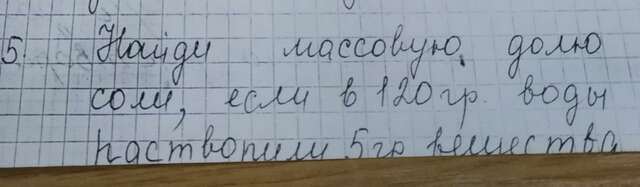 5. Найди массовую долю
соли, если в 120 гр. воды
растворили 5 гр вещества